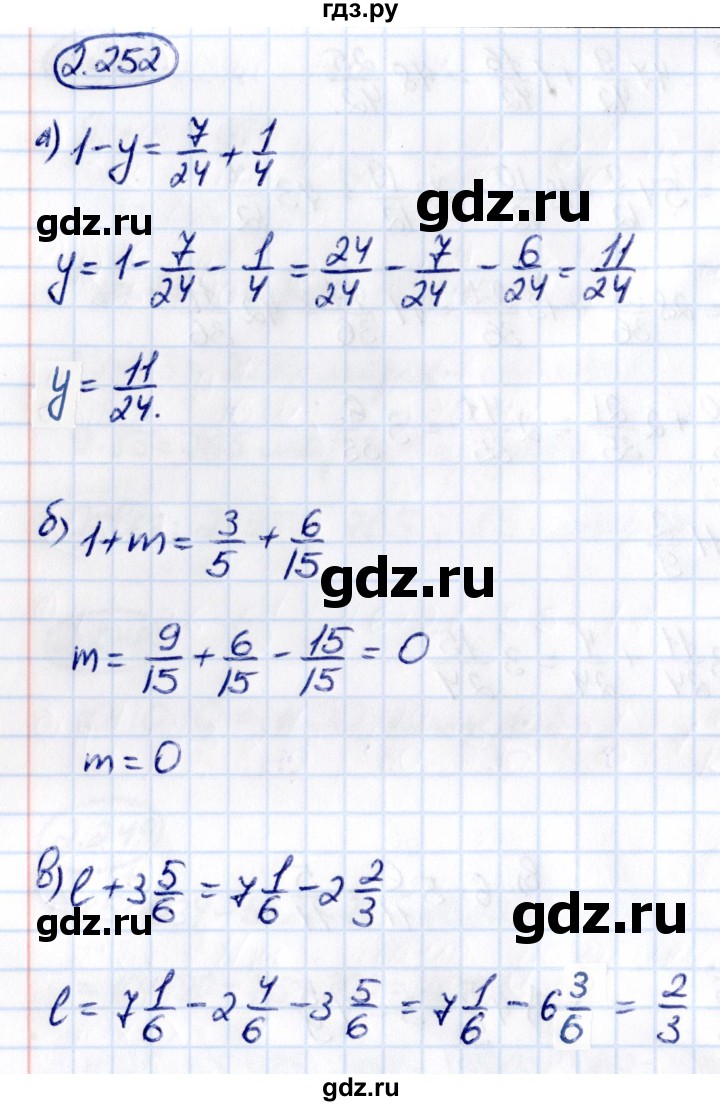 гдз.ру
2.252
а) 1 - y = 7/24 + 1/4
gdz.ru
gdz.ru
y = 1 - 7/24 - 1/4 = 24/24 - 7/24 - 6/24 = 11/24
y = 11/24.
б) 1 + m = 3/5 + 6/15
gdz.ru
m = 9/15 + 6/15 - 15/15 = 0
m = 0
в) l + 3 5/6 = 7 1/6 - 2 2/3
gdz.ru
gdz.ru
l = 7 1/6 - 2 4/6 - 3 5/6 = 7 1/6 - 6 3/6 = 2/3
gdz.ru